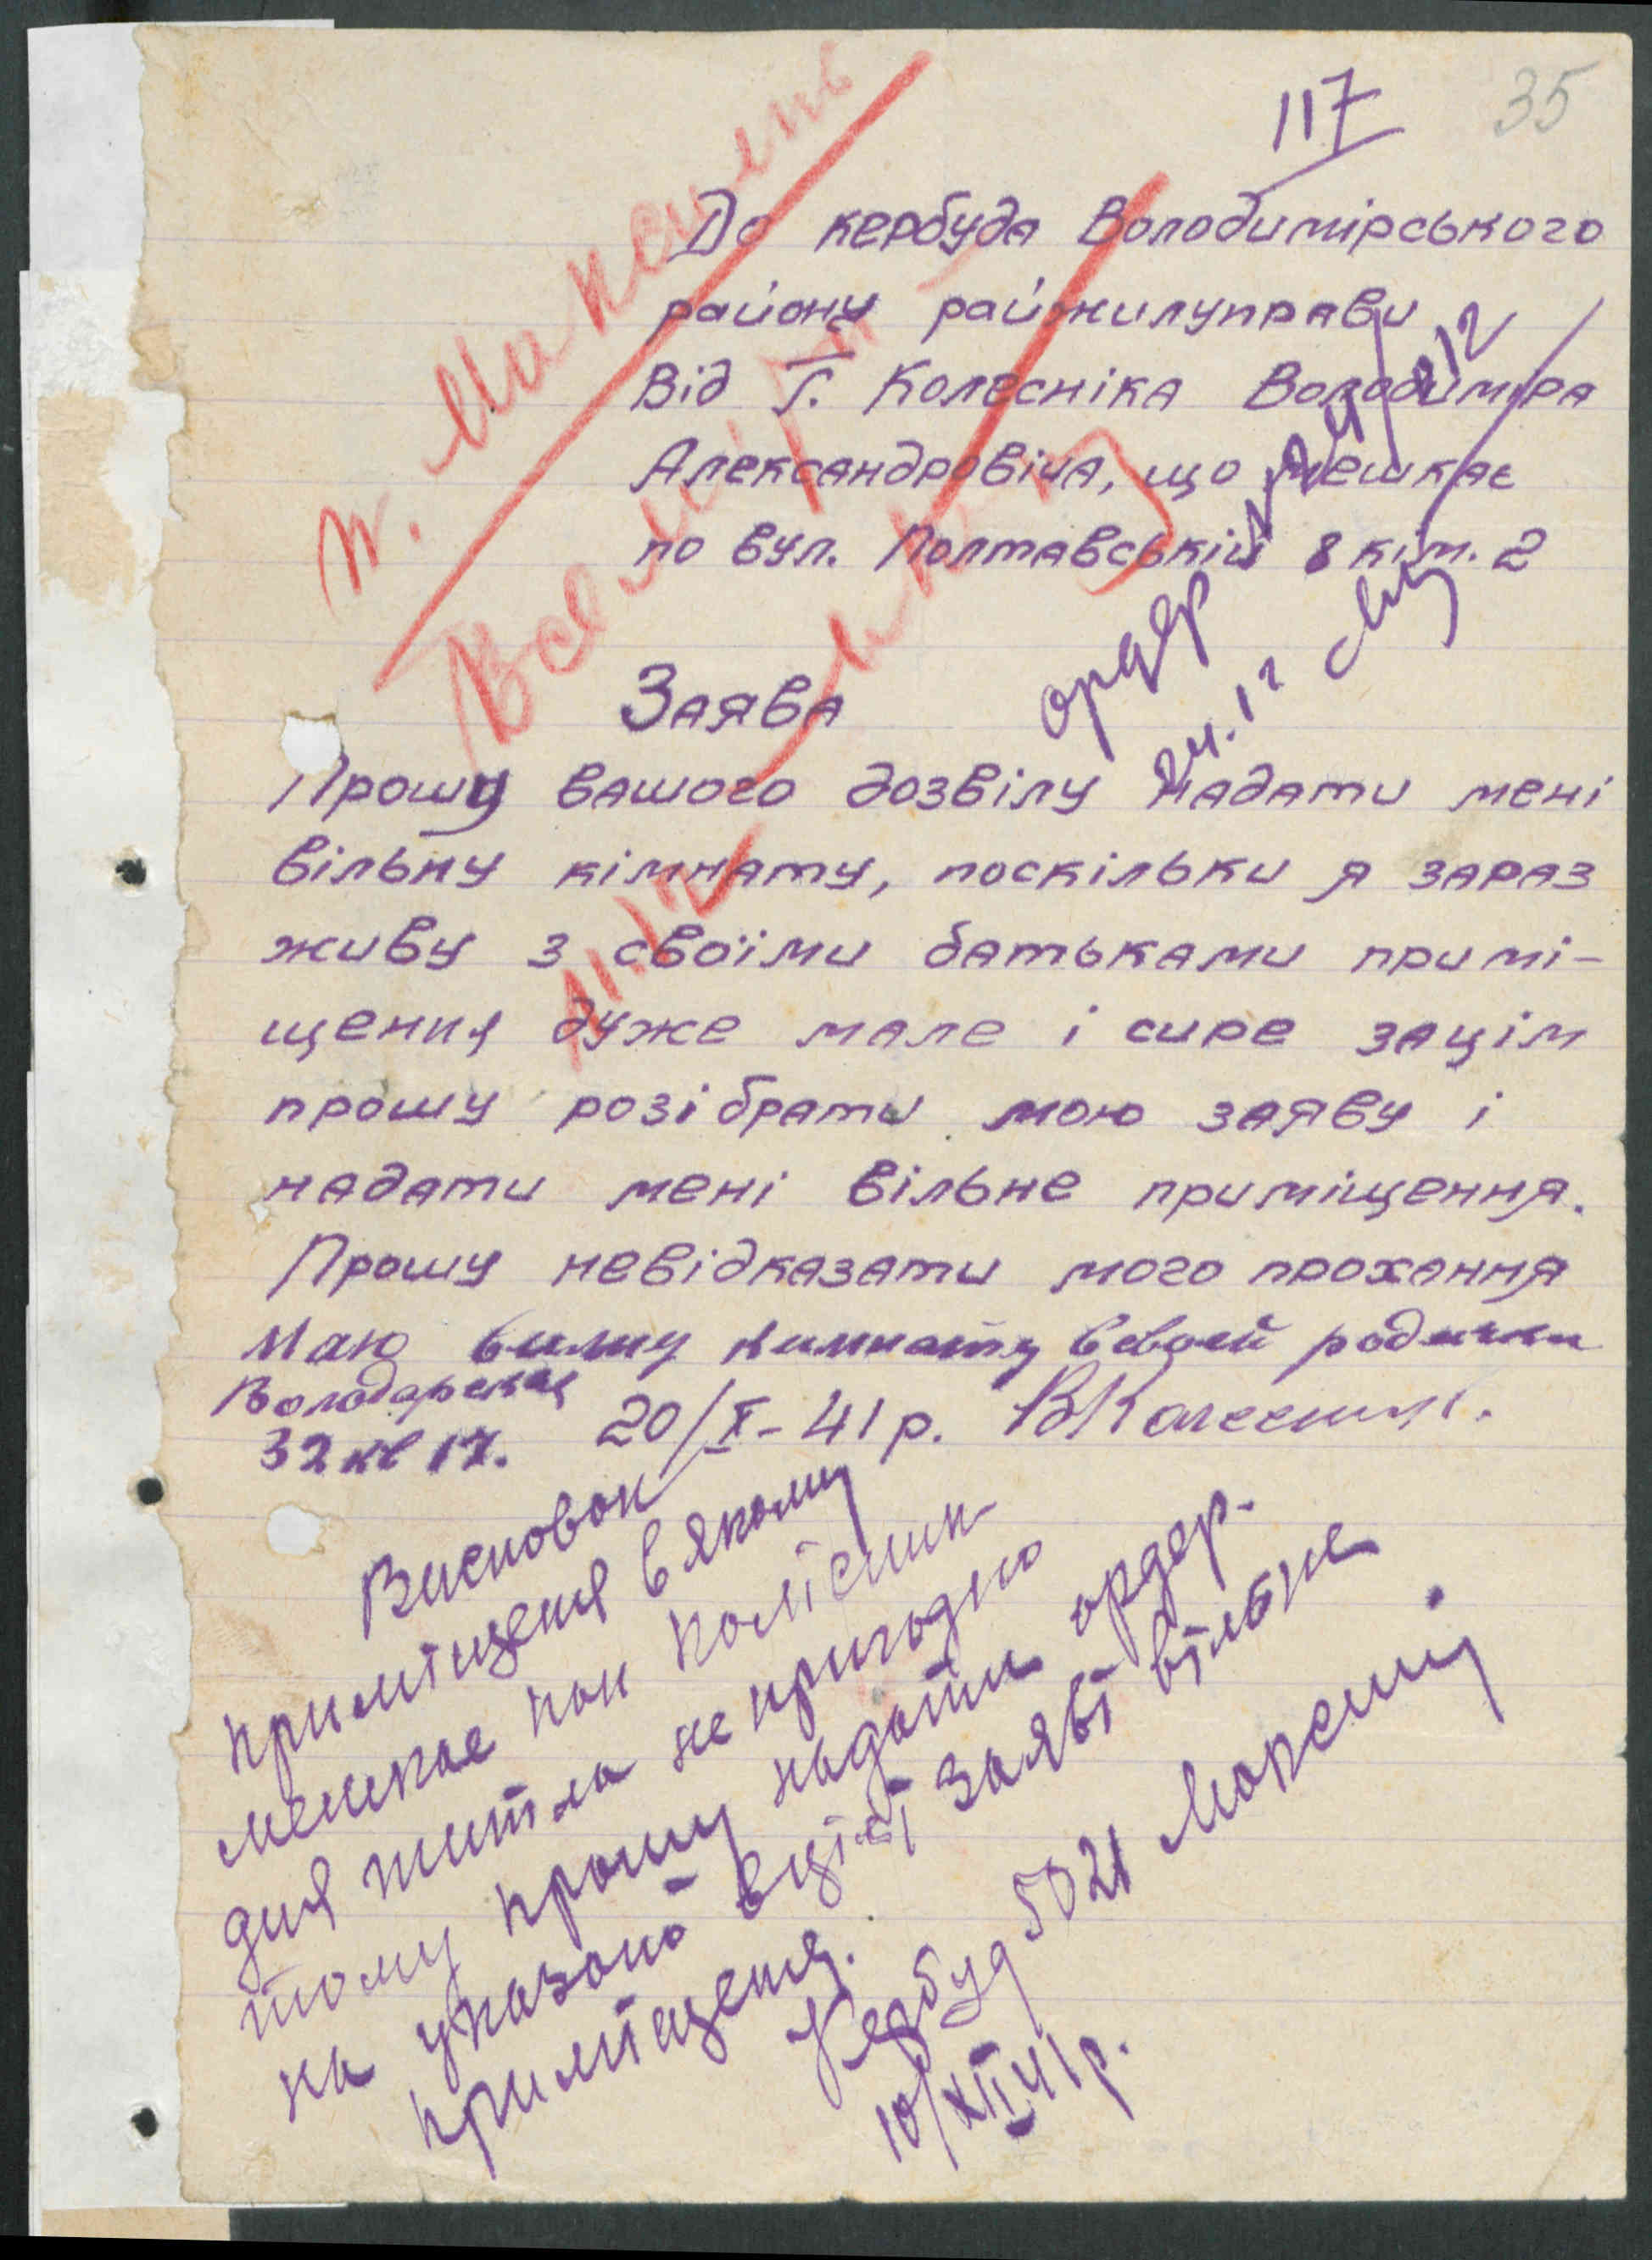 117
35
До кербуда Володимірського
району райжилуправи
Від Г. Колесніка Володиміра
Александровіча, що мешкає
по вул. Полтавській 8 кім. 2
ордер
Заява
Прошу вашого дозвілу надати мені
вільну кімнату, поскільки я зараз
живу з своїми батьками примі-
щення дуже мале і сире зацім
прошу розібрати мою заяву і
надати мені вільне приміщення.
Прошу невідказати мого прохання
Маю вилну кимнату в своей родички
Володарская
32 кв 17. 20/X-41 р. ВКолесник.
Висновок
приміщеня в якому
мешкае пан Колісник
для житла не пригодно
тому прошу надати ордер.
на указано в ції заяві вільне
приміщеня.
Кербуд 5021
10/XII 41 р.